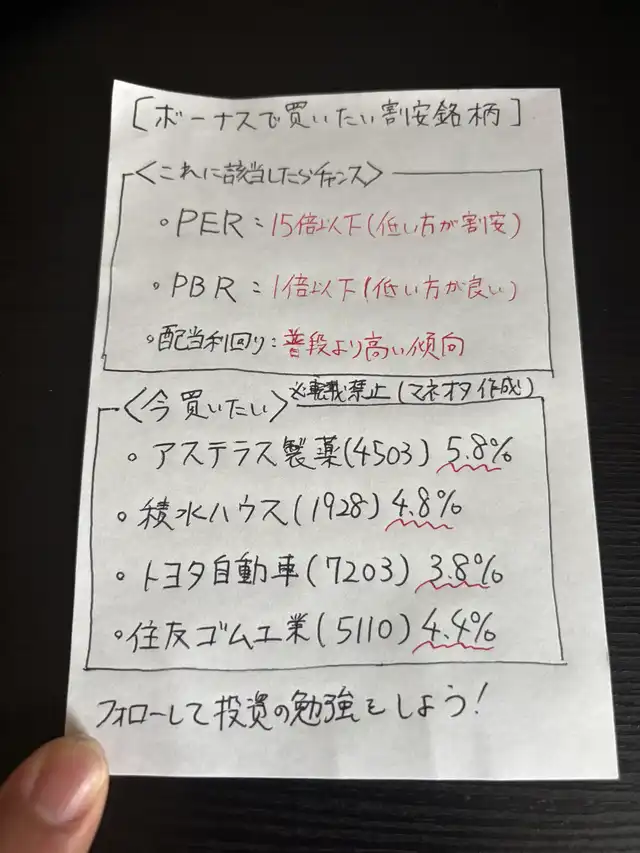 [ボーナスで買いたい割安銘柄]
<これに該当したらチャンス>
◦PER:15倍以下(低い方が割安)
◦PBR:1倍以下(低い方が良い)
◦配当利回り:普段より高い傾向
※転載禁止(マネオタ作成)
<今買いたい>
◦アステラス製薬(4503) 5.8%
◦積水ハウス(1928) 4.8%
◦トヨタ自動車(7203) 3.8%
◦住友ゴム工業(5110) 4.4%
フォローして投資の勉強をしよう!